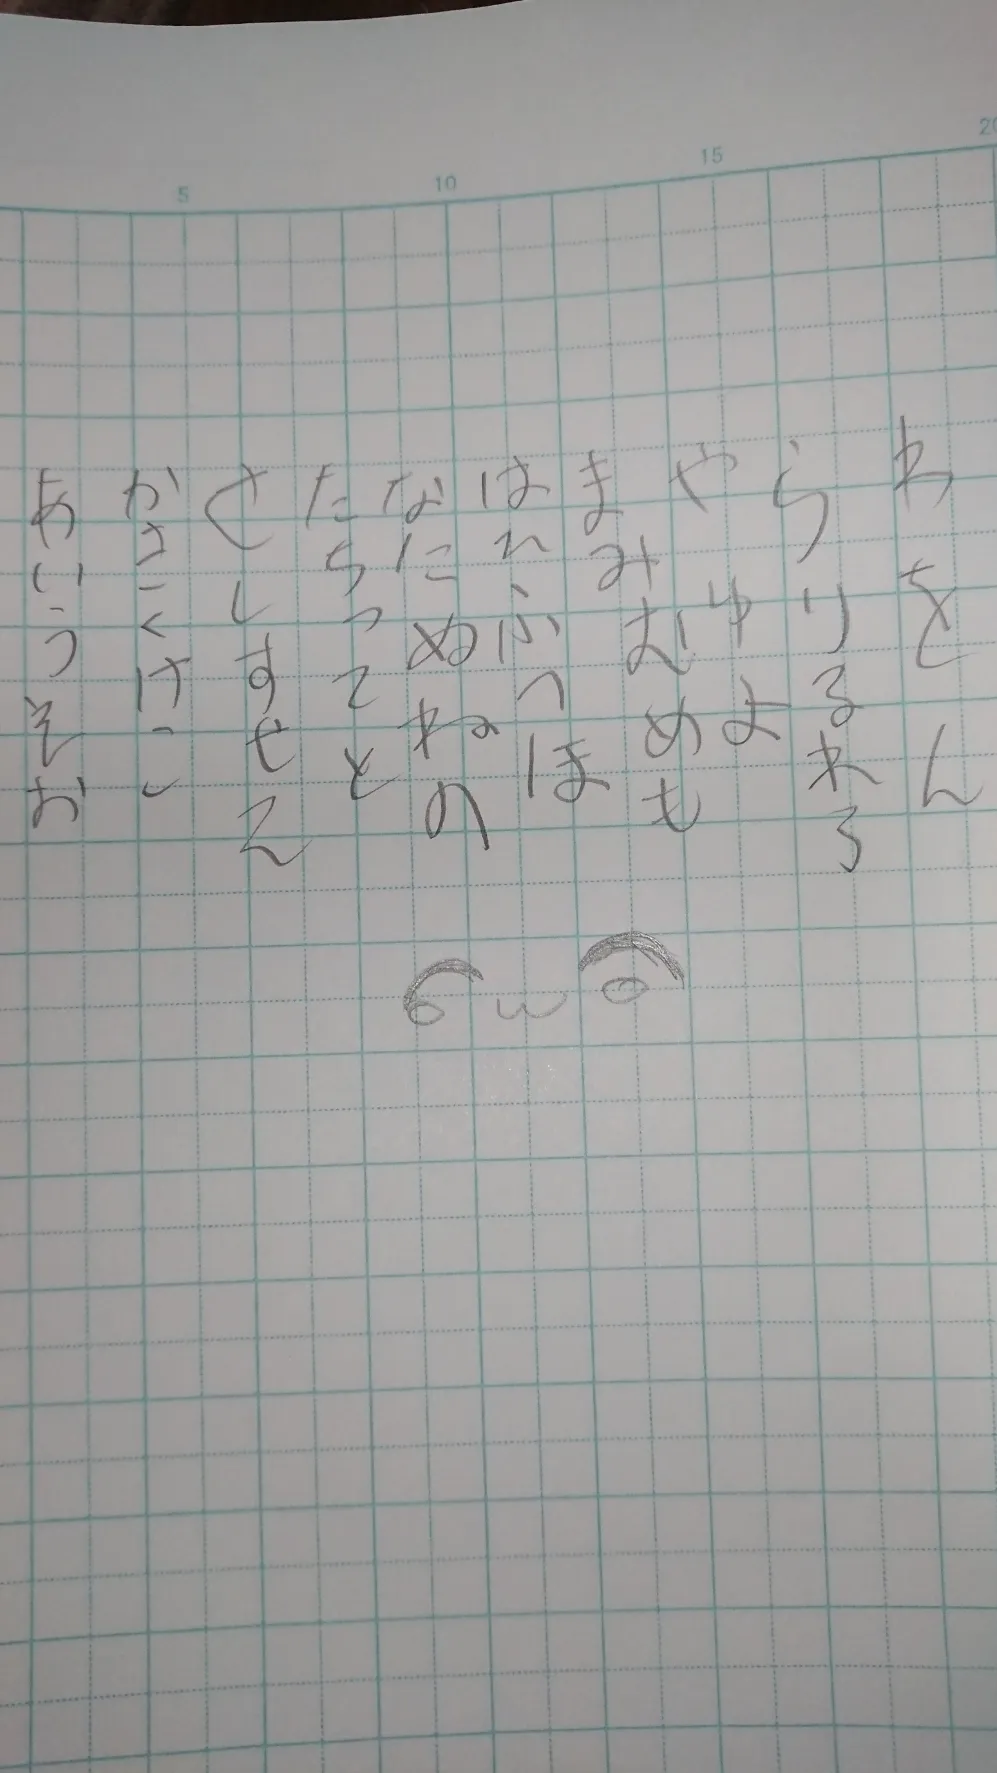 5 10 15 20
あいうえお
かきくけこ
さしすせそ
たちつてと
なにぬねの
はひふへほ
まみむめも
やゆよ
らりるれろ
わをん